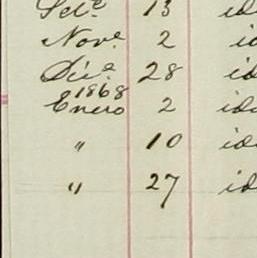 Set.e 13 id
Nov.e 2 id
Dic.e 28 id
1868
Enero 2 id
" 10 id
" 27 id